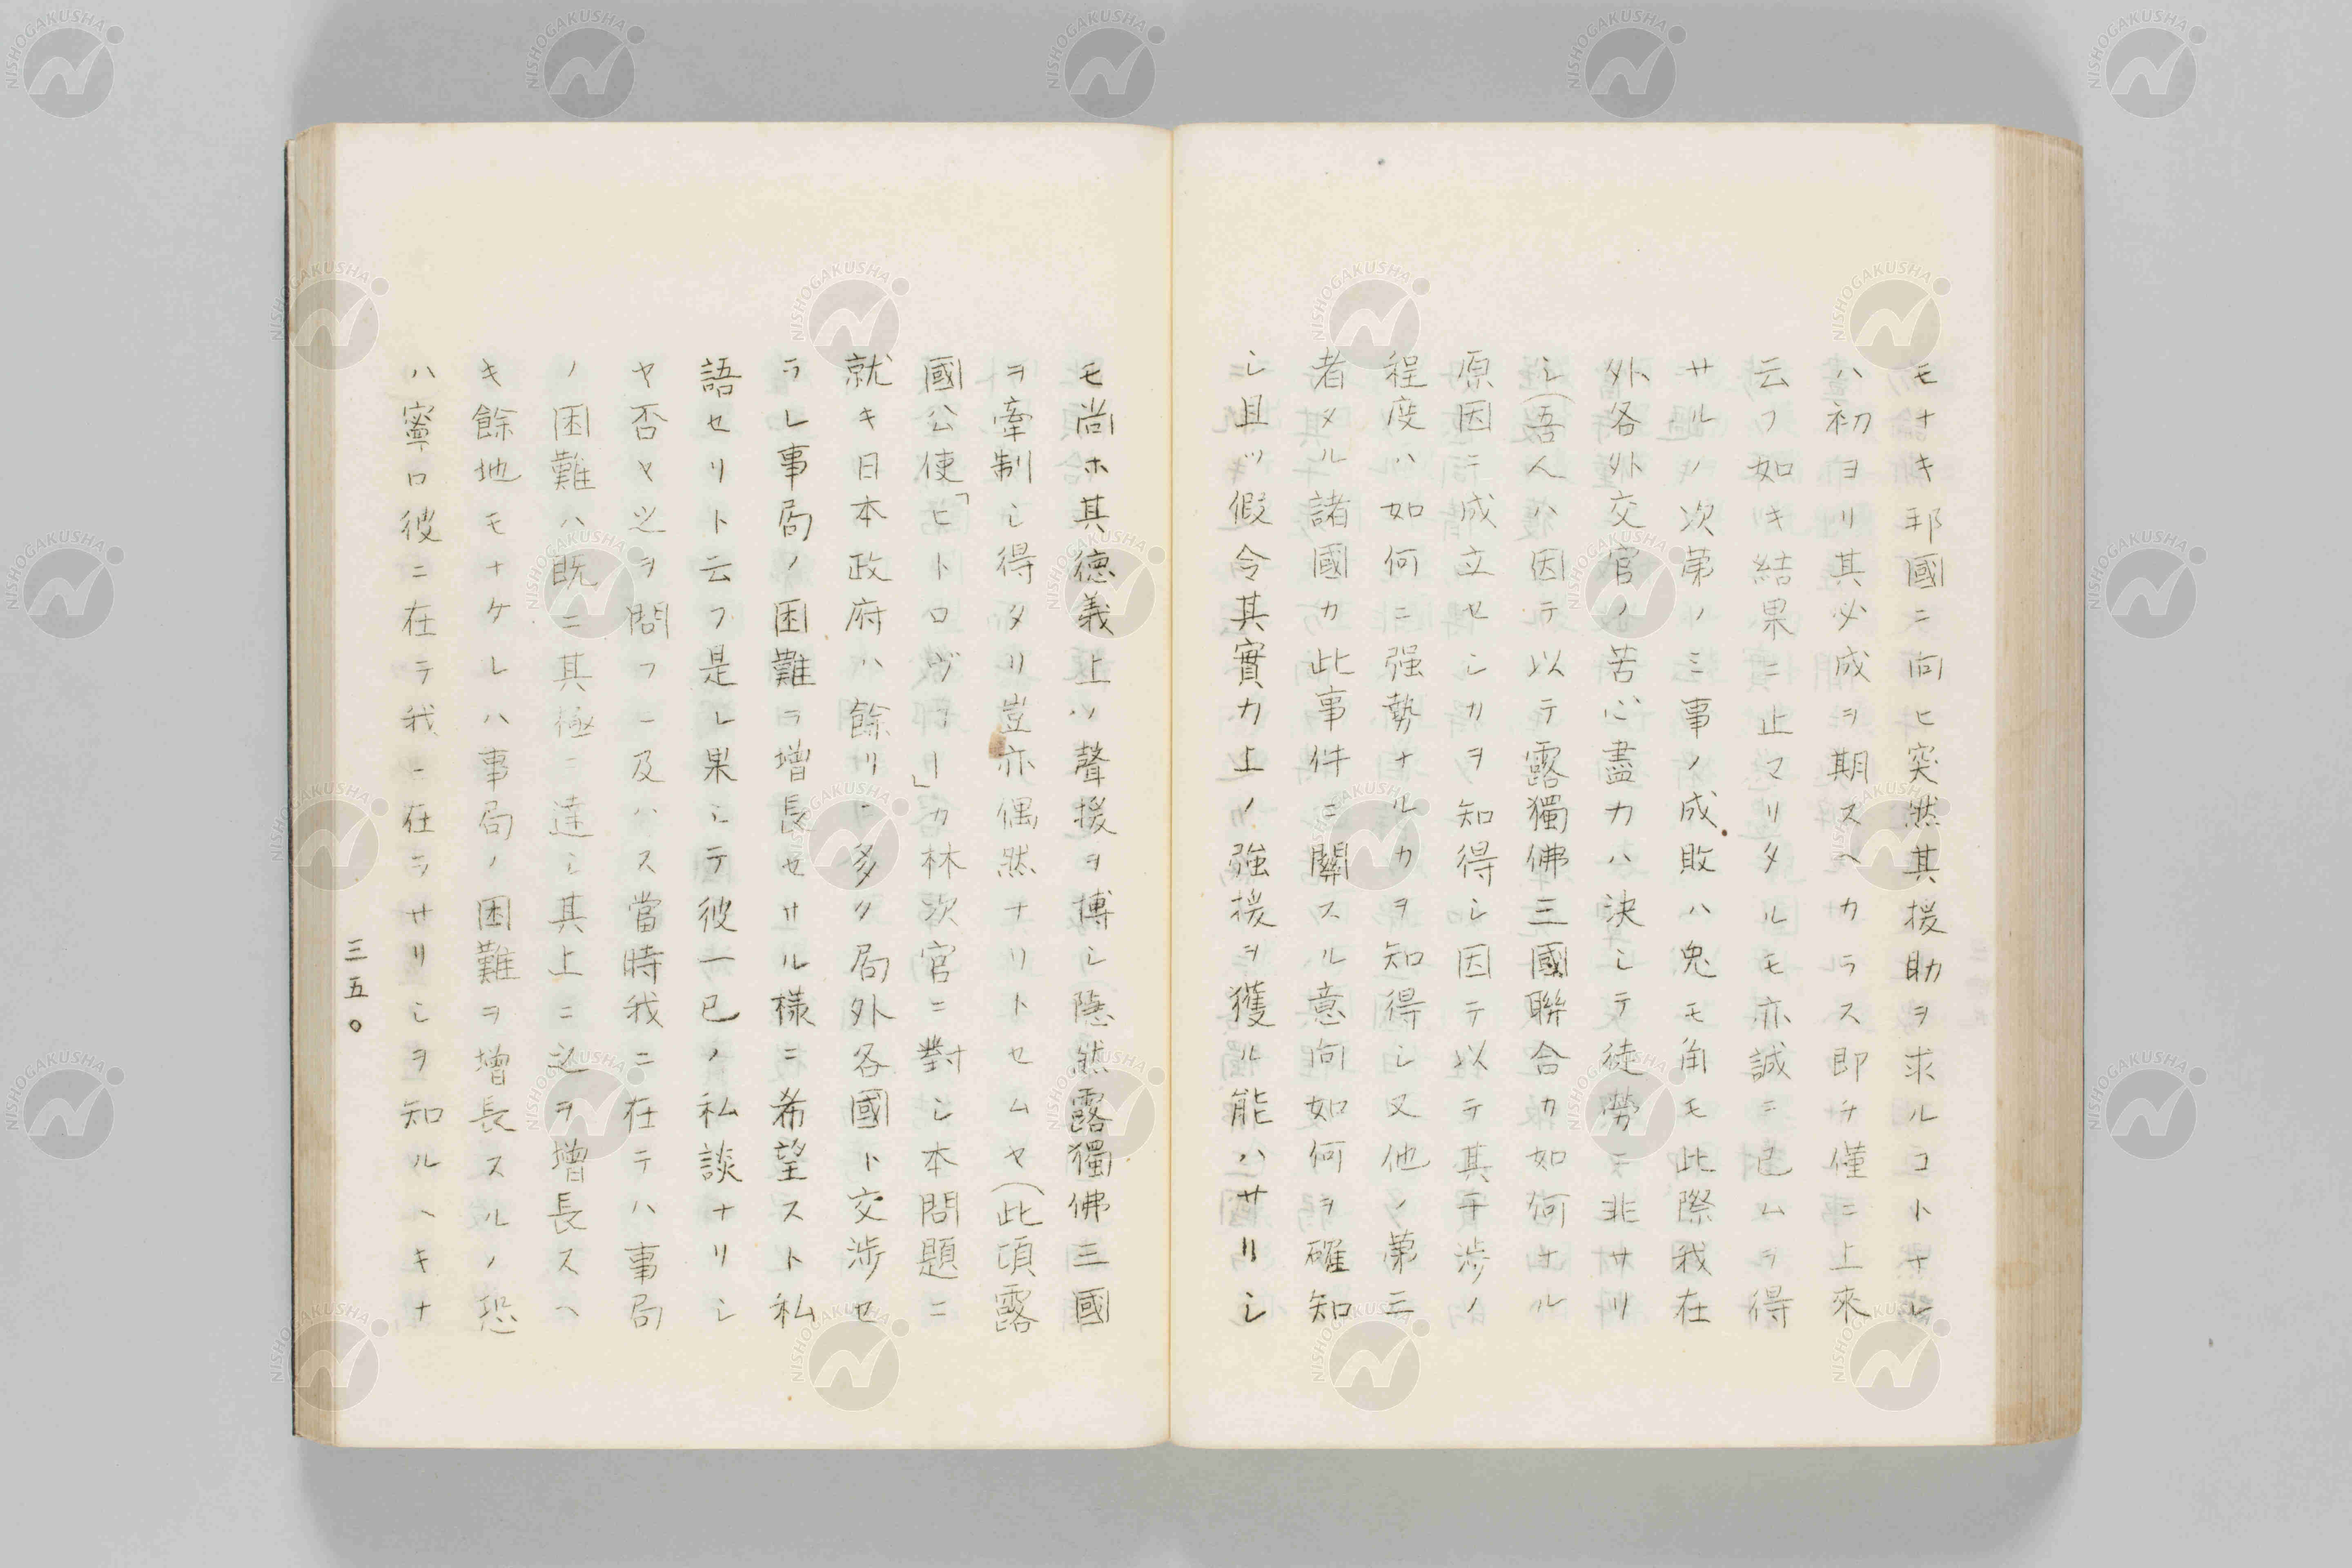 モナキ邦國ニ向ヒ突然其援助ヲ求ルコトナレ
ハ初ヨリ其必成ヲ期スヘカラス即チ僅ニ上來
云フ如キ結果ニ止マリタルモ亦誠ニ已ムヲ得
サルノ次第ノミ事ノ成敗ハ兎モ角モ此際我在
外各外交官ノ苦心盡力ハ決シテ徒勞ニ非サリ
シ(吾人ハ因テ以テ露獨佛三國聯合カ如何ナル
原因ニテ成立セシカヲ知得シ因テ以テ其干渉ノ
程度ハ如何ニ强勢ナルカヲ知得シ又他ノ第三
者タル諸國カ此事件ニ關スル意向如何ヲ確知
シ且ツ假令其實力上ノ強援ヲ獲ル能ハサリシ
モ尚ホ其德義上ノ聲援ヲ博シ隱然露獨佛三國
ヲ牽制シ得タリ豈亦偶然ナリトセムヤ(此頃露
國公使「ヒトロヴヲー」カ林次官ニ對シ本問題ニ
就キ日本政府ハ餘リニ多ク局外各國ト交渉セ
ラレ事局ノ困難ヲ增長セサル様ニ希望スト私
語セリト云フ是レ果シテ彼一已ノ私談ナリシ
ヤ否ヤ之ヲ問フニ及ハス當時我ニ在テハ事局
ノ困難ハ既ニ其極ニ達シ其上ニ之ヲ增長スヘ
キ餘地モナケレハ事局ノ困難ヲ增長スルノ恐
ハ寧ロ彼ニ在テ我ニ在ラサリシヲ知ルヘキナ
三五〇
NISHOGAKUSHA